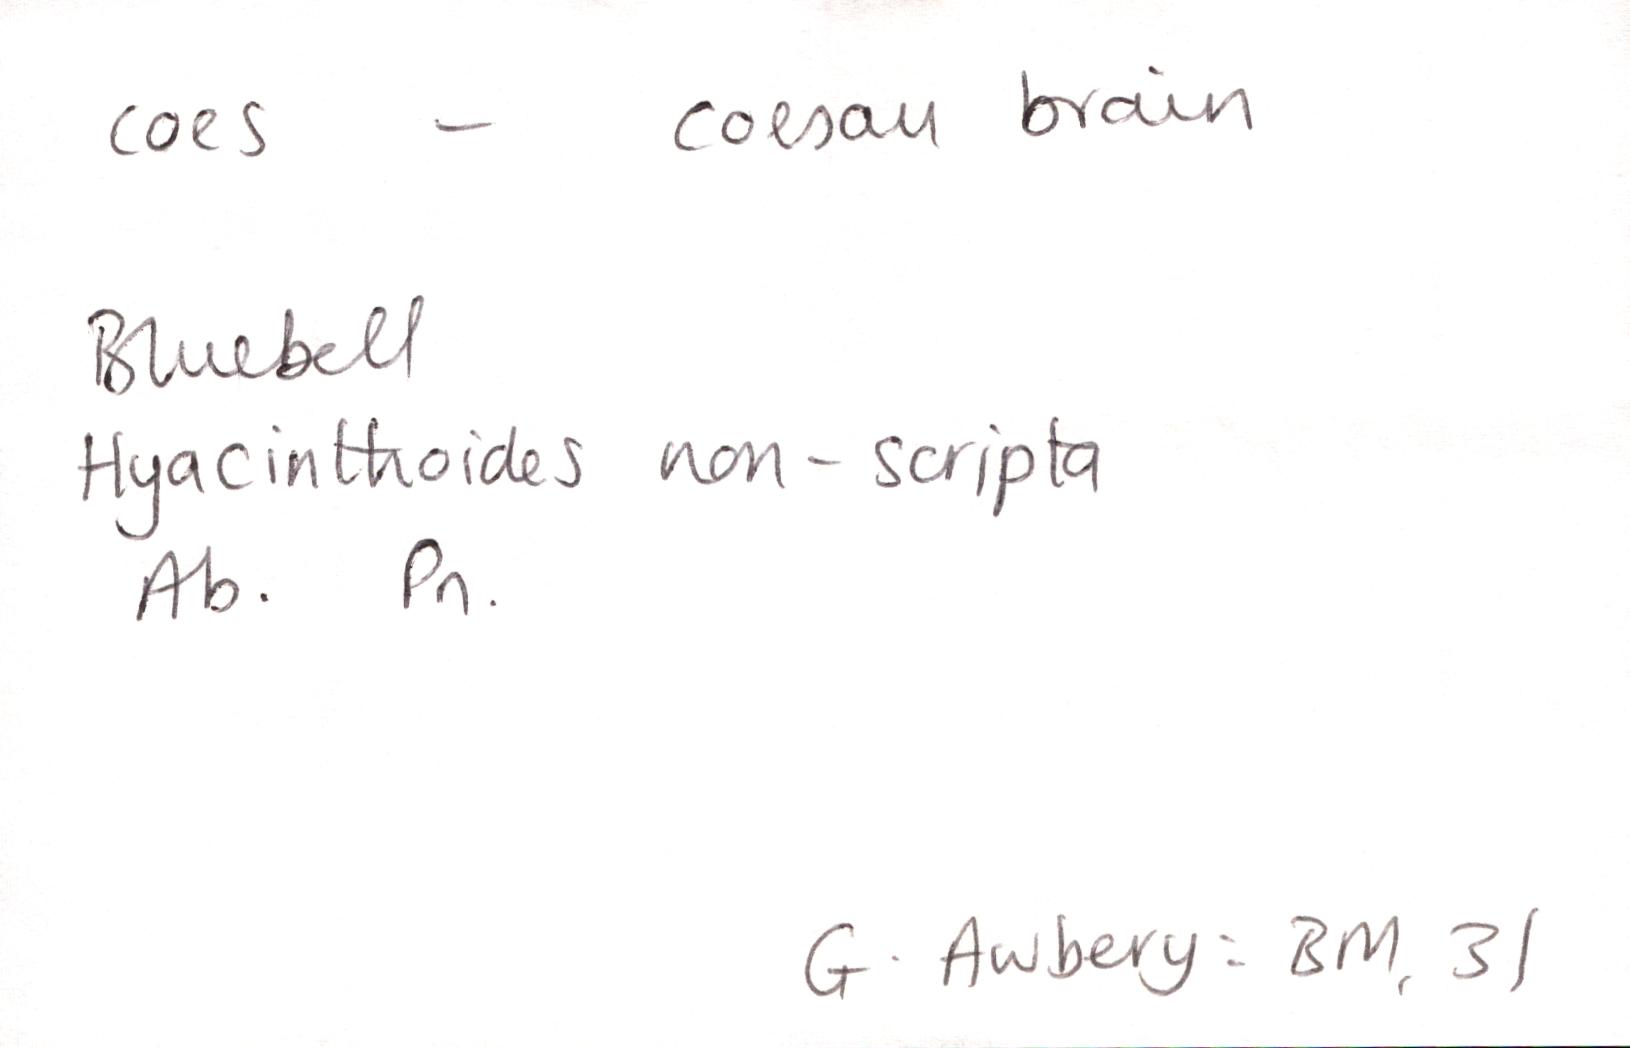 coes - coesau brain
Bluebell
Hyacinthoides non-scripta
Ab. Pn.
G. Awbery: BM, 31